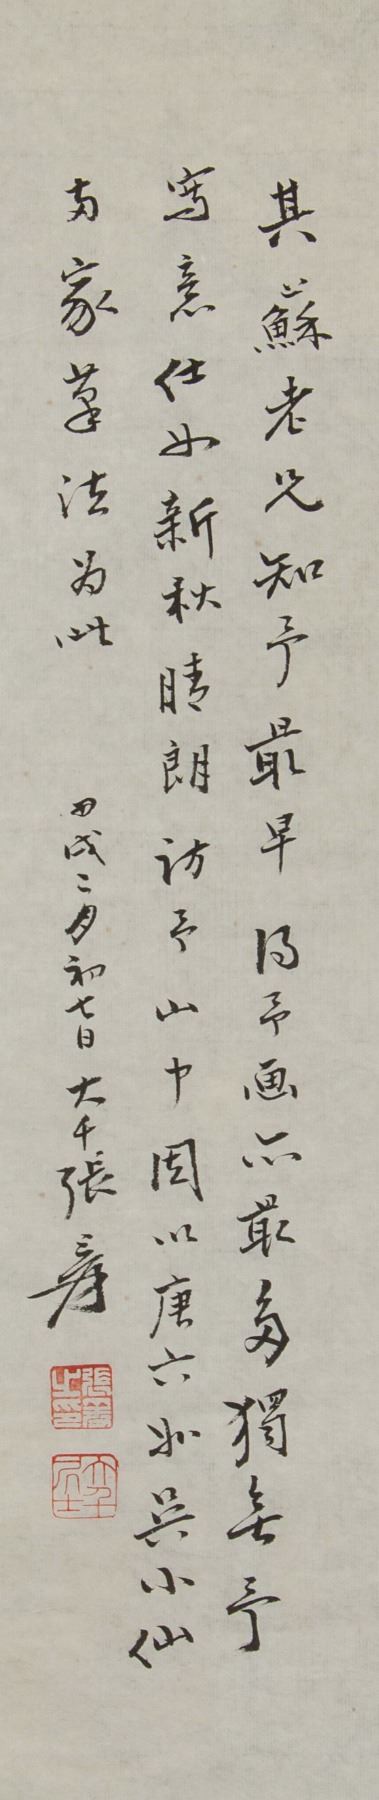 其蘇老兄知予最早得予画亦最多獨無予
寫意仕女新秋晴朗訪予山中因以唐六如吳小仙
兩家筆法为此 甲戌二月初七日大千張爰
張爰之印
大千居士